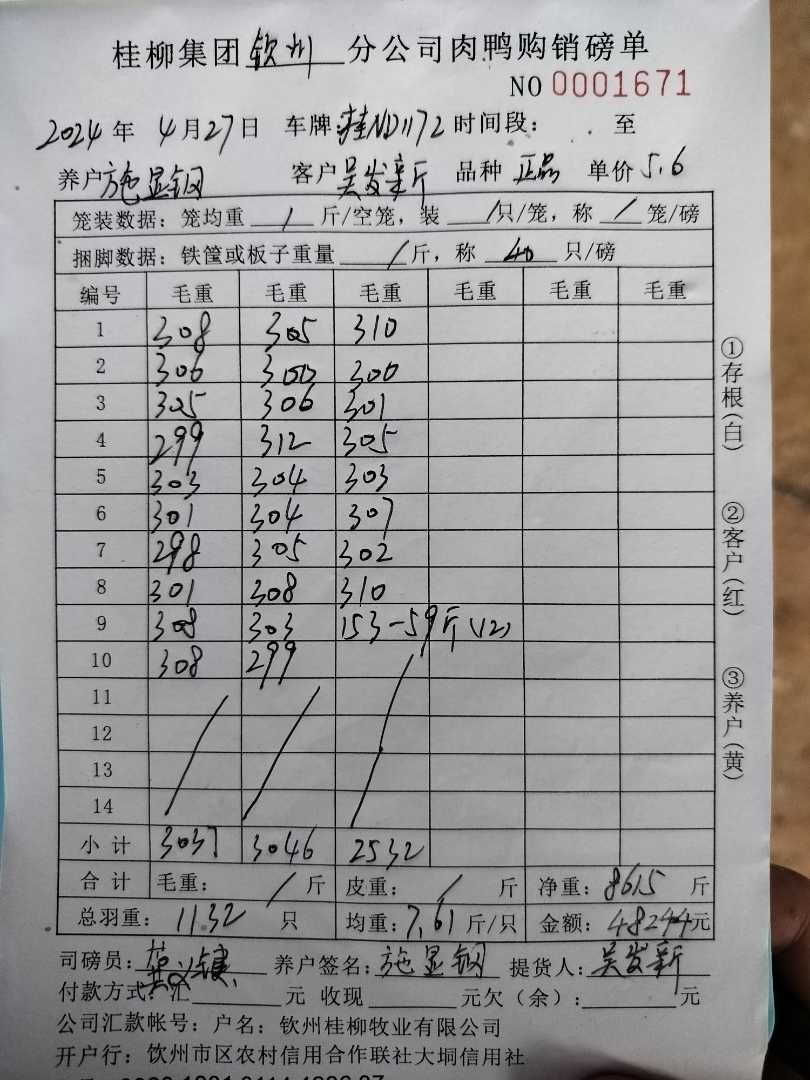 桂柳集团钦州分公司肉鸭购销磅单
NO 0001671
2024年 4月27日 车牌:桂ND1172 时间段: . 至
养户施显钢 客户吴发新 品种 正品 单价5.6
笼装数据: 笼均重 / 斤/空笼, 装 /只/笼, 称 / 笼/磅
捆脚数据: 铁筐或板子重量 / 斤, 称 40 只/磅
编号 毛重 毛重 毛重 毛重 毛重 毛重
1 308 305 310
2 306 300 300
3 305 306 301
4 299 312 305
5 303 304 303
6 301 304 307
7 298 305 302
8 301 308 310
9 308 303 153-59斤(12)
10 308 299
11
12
13
14
小 计 3037 3046 2532
合 计 毛重: / 斤 皮重: / 斤 净重: 8615 斤
总羽重: 1132 只 均重: 7.61 斤/只 金额: 48244元
司磅员: 养户签名: 施显钢 提货人: 吴发新
付款方式: 汇 元 收现 元欠(余): 元
公司汇款帐号: 户名: 钦州桂柳牧业有限公司
开户行: 饮州市区农村信用合作联社大垌信用社
①存根(白)
②客户(红)
③养户(黄)